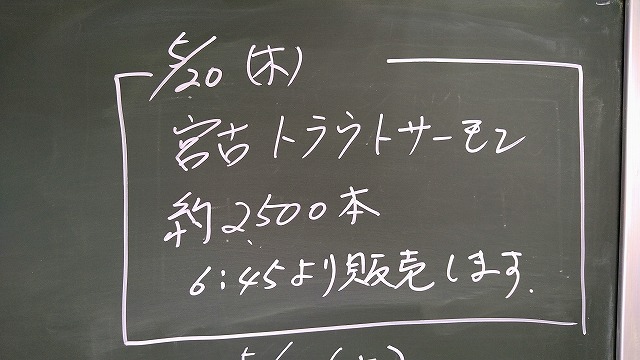 5/20 (木)
宮古トラウトサーモン
約2500本
6:45より販売します.